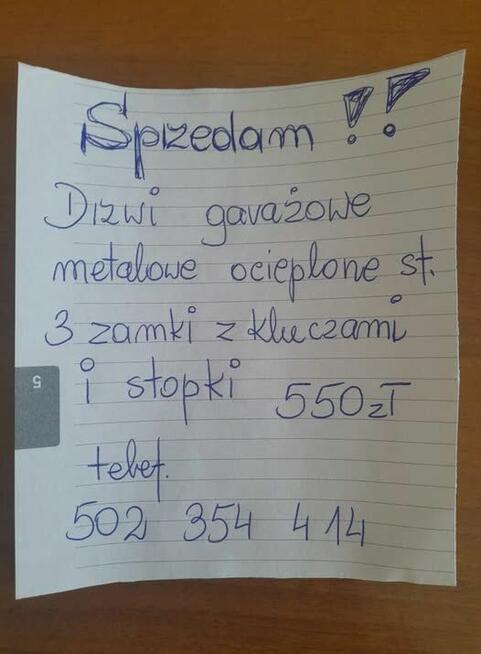 Sprzedam !!
Drzwi garażowe
metalowe ocieplone st.
3 zamki z kluczami
i stopki 550zł
telef.
502 354 414
5